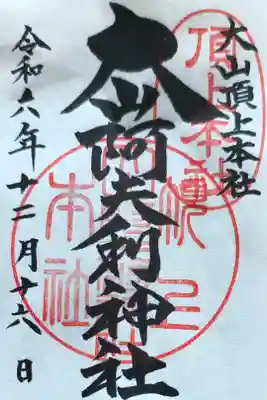 大山頂上本社
頂上本社
大山阿夫利神社
頂上
本社
令和六年十二月十六日